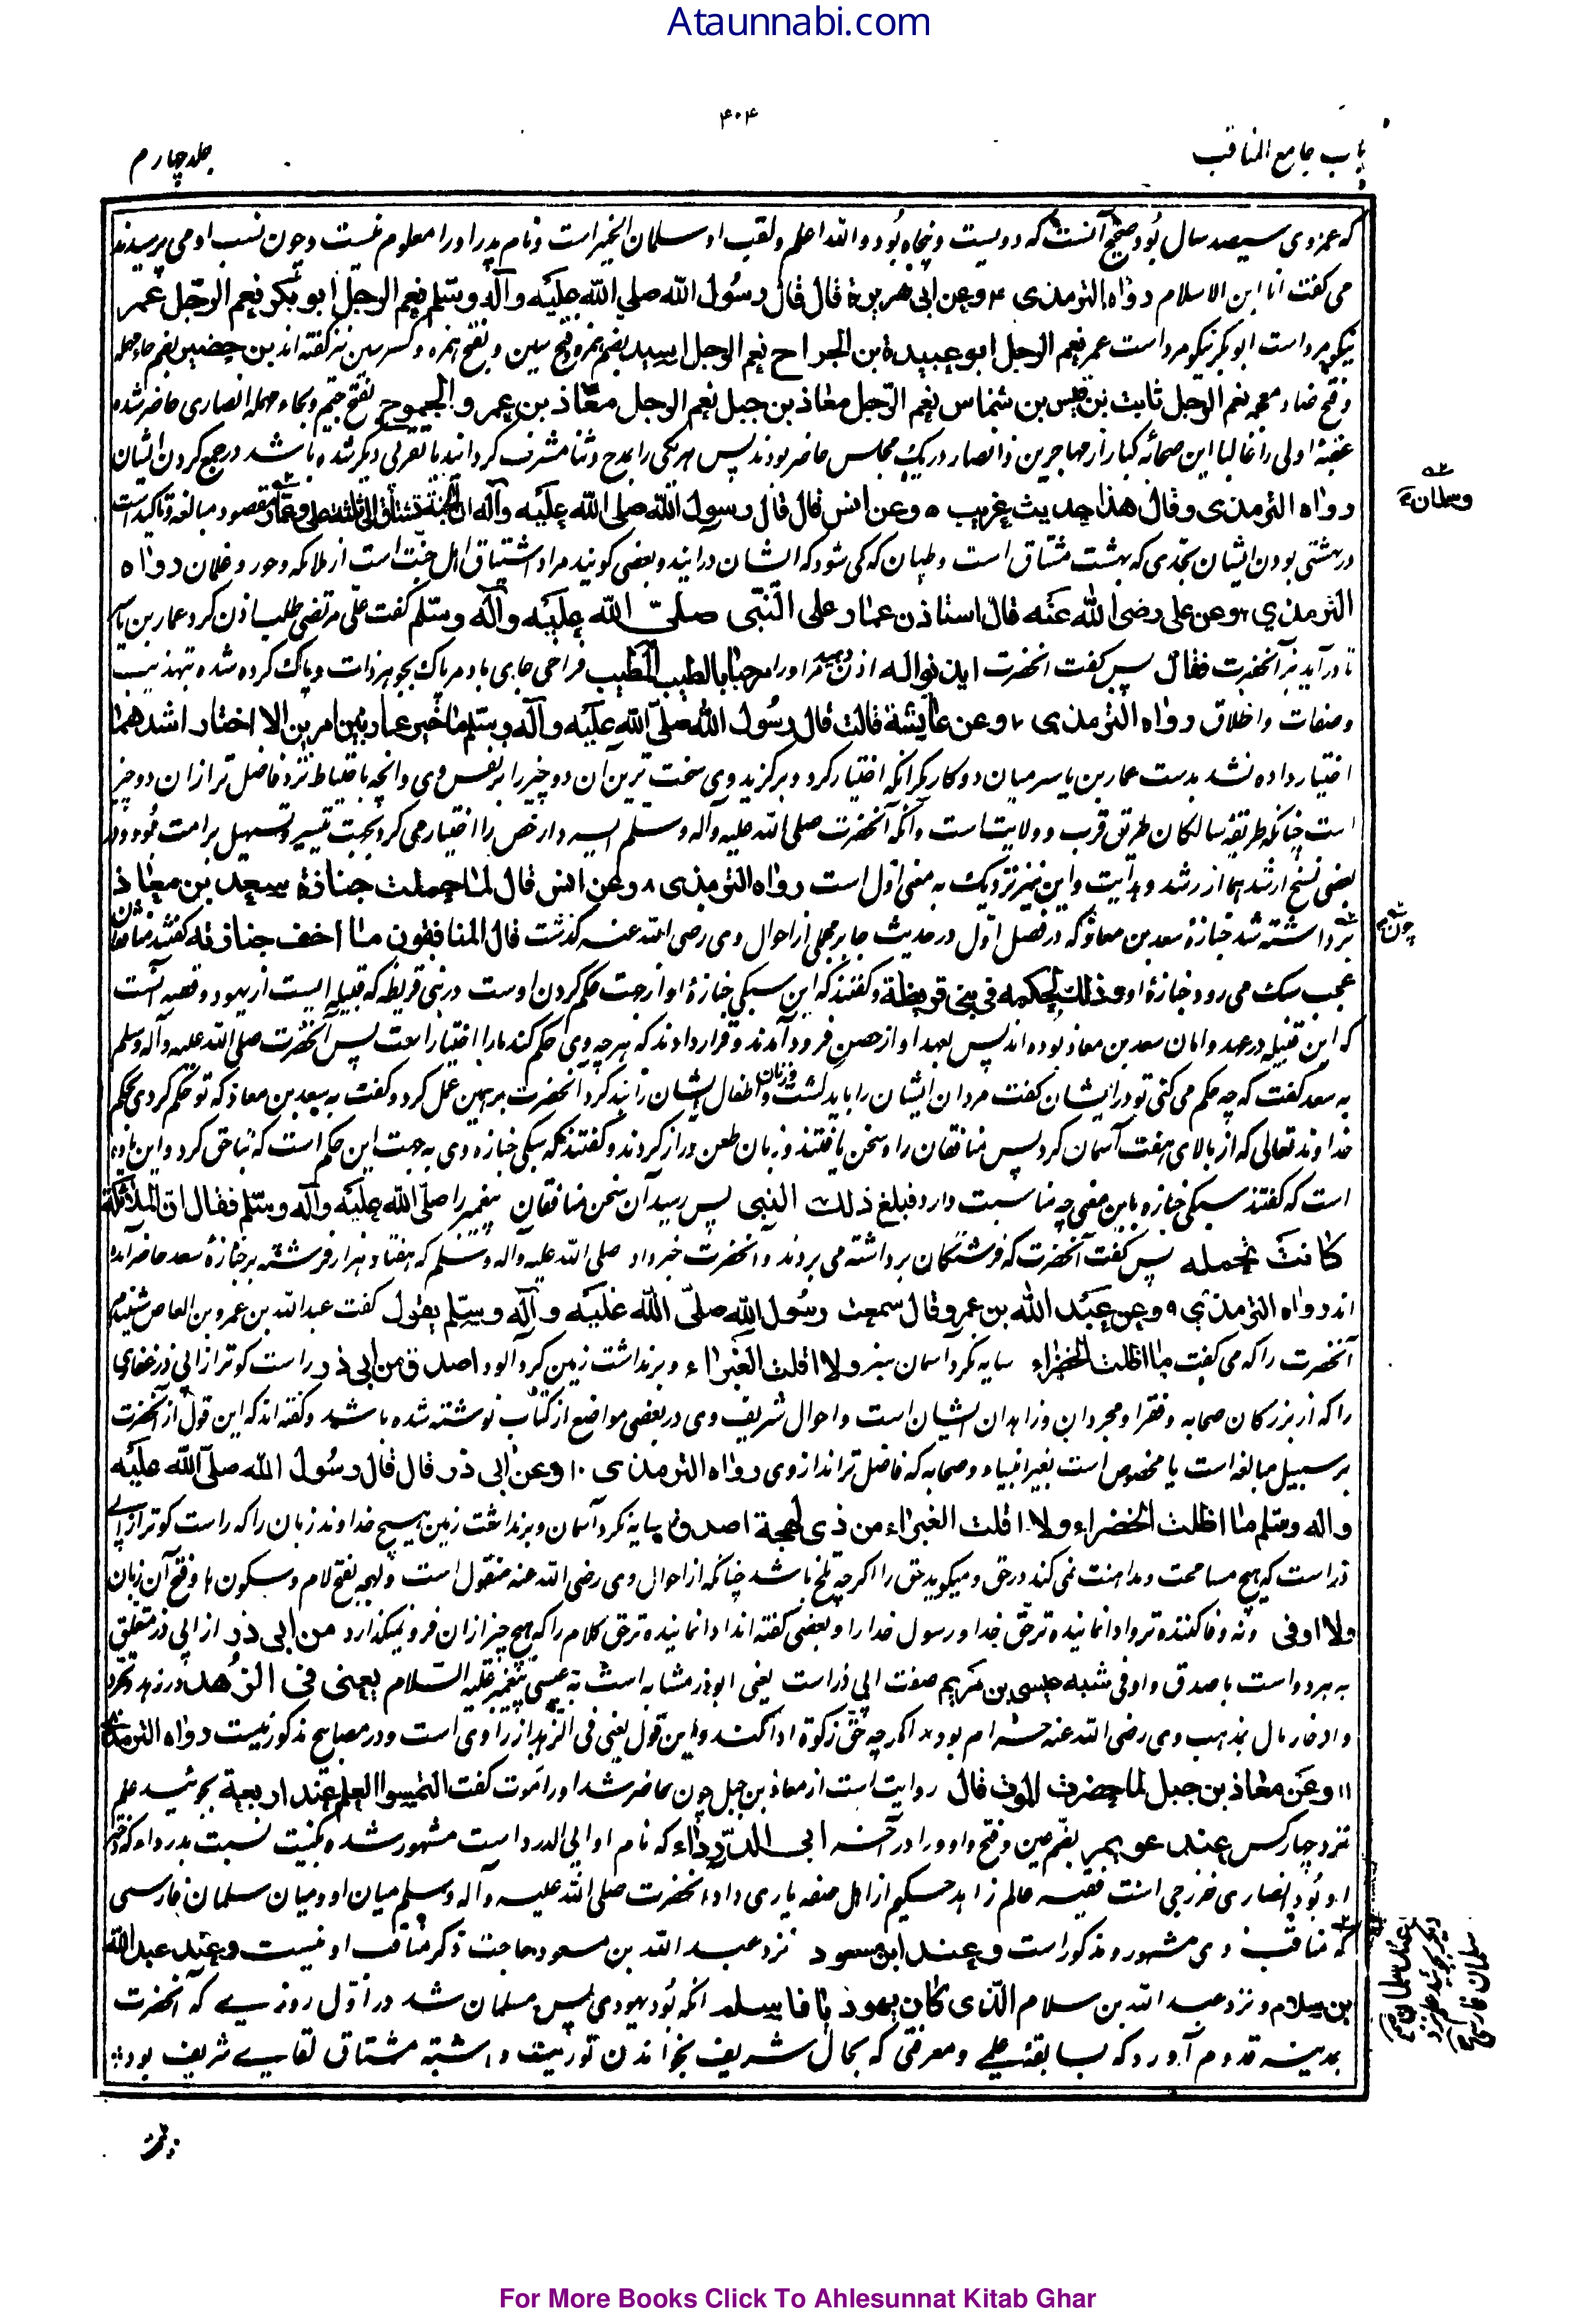 Ataunnabi.com
۴۰۴
باب جامع المناقب
جلد چهارم
که عمر وی سیصد سال بود و صحیح آنست که دویست و پنجاه بود والله اعلم و لقب او سلمان الخیر است و نام پدر او را معلوم نیست و چون نسب او می پرسیدند
می گفت انا ابن الاسلام رواه الترمذی ۴ وعن ابی هریرة قال قال رسول الله صلی الله علیه وآله وسلم نعم الرجل ابو بکر نعم الرجل عمر
نیکو مرد است ابو بکر نیکو مرد است عمر نعم الرجل ابو عبیدة بن الجراح نعم الرجل اسید بضم همزه و فتح سین و بفتح همزه و کسر سین نیز گفته اند بن حضیر بضم حاء مهمله
و فتح ضاد معجمه نعم الرجل ثابت بن قیس بن شماس نعم الرجل معاذ بن جبل نعم الرجل معاذ بن عمرو الجموح بفتح جیم و بحاء مهمله انصاری حاضر شده
عقبهٔ اولی را غالبا این صحابهٔ کبار از مهاجرین و انصار در یک مجلس حاضر بودند پس هر یکی را بمدح و ثنا مشرف گردانید یا تقریبی دیگر شده باشد در جمع کردن ایشان
رواه الترمذی وقال هذا حدیث غریب ۵ وعن انس قال قال رسول الله صلی الله علیه وآله ان الجنة تشتاق الی ثلثة علی وعمار مقصود مبالغه و تاکید است
وسلمان
در بهشتی بودن ایشان بحدی که بهشت مشتاق است و طپان که کی شود که ایشان درآیند و بعضی گویند مراد اشتیاق اهل جنت است از ملائکه و حور و غلمان رواه
الترمذی ۶ وعن علی رضی الله عنه قال استاذن عمار علی النبی صلی الله علیه وآله وسلم گفت علی مرتضی طلب اذن کرد عمار بن یاسر
تا درآید بر آنحضرت فقال پس گفت آنحضرت ایذنوا له اذن دهید مر او را مرحبا بالطیب المطیب فراخی جای باد مر پاک بجوهر ذات و پاک کرده شده بتهذیب
وصفات و اخلاق رواه الترمذی ۷ وعن عایشة قالت قال رسول الله صلی الله علیه وآله وسلم ما خیر عمار بین امرین الا اختار اشدهما
اختیار داده نشد بدست عمار بن یاسر میان دو کار مگر آنکه اختیار کرد و برگزید وی سخت ترین آن دو چیز را بر نفس وی و آنچه باحتیاط نزد فاضل تر از ان دو چیز
است چنانکه طریقهٔ سالکان طریق قرب و ولایت است و آنکه آنحضرت صلی الله علیه وآله وسلم ایسر و ارخص را اختیار می کرد بجهت تیسیر و تسهیل بر امت بود و در
بعضی نسخ ارشدهما از رشد و هدایت و این نیز نزدیک به معنی اول است رواه الترمذی ۸ وعن انس قال لما حملت جنازة سعد بن معاذ
چون
برداشته شد جنازهٔ سعد بن معاذ که در فصل اول در حدیث جابر مجملی از احوال وی رضی الله عنه گذشت قال المنافقون ما اخف جنازته گفتند منافقان
عجب سبک می رود جنازهٔ او وذلک لحکمه فی بنی قریظة و گفتند که این سبکی جنازهٔ او از جهت حکم کردن اوست در بنی قریظه که قبیله ایست از یهود و قصه آنست
که این قبیله در عهد و امان سعد بن معاذ بوده اند پس بعهد او از حصن فرود آمدند و قرار دادند که هر چه وی حکم کند ما را اختیار است پس آنحضرت صلی الله علیه وآله وسلم
به سعد گفت که چه حکم می کنی تو در ایشان گفت مردان ایشان را باید کشت و زنان و اطفال ایشان را بند کرد آنحضرت بر همین عمل کرد و گفت به سعد بن معاذ که تو حکم کردی بحکم
خداوند تعالی که از بالای هفت آسمان کرد پس منافقان راه سخن یافتند و زبان طعن دراز کردند و گفتند که سبکی جنازه وی به جهت این حکم است که بناحق کرد و این
است که گفتند سبکی جنازه باین معنی چه مناسبت دارد فبلغ ذلک النبی پس رسید آن سخن منافقان پیغمبر را صلی الله علیه وآله وسلم فقال ان الملائکة
کانت تحمله پس گفت آنحضرت که فرشتگان برداشته می بردند و آنحضرت خبر داد صلی الله علیه وآله وسلم که هفتاد هزار فرشته بر جنازهٔ سعد حاضر آمده
اند رواه الترمذی ۹ وعن عبد الله بن عمرو قال سمعت رسول الله صلی الله علیه وآله وسلم یقول گفت عبد الله بن عمرو بن العاص شنیدم
آنحضرت را که می گفت ما اظلت الخضراء سایه نکرد آسمان سبز ولا اقلت الغبراء و برنداشت زمین گرد آلود اصدق من ابی ذر راست گو تر از ابی ذر غفاری
را که از بزرگان صحابه و فقرا و مجردان و زاهدان ایشان است و احوال شریف وی در بعضی مواضع از کتاب نوشته شده باشد و گفته اند که این قول از آنحضرت
بر سبیل مبالغه است یا مخصوص است بغیر انبیاء و صحابه که فاضل تر اند از وی رواه الترمذی ۱۰ وعن ابی ذر قال قال رسول الله صلی الله علیه
واله وسلم ما اظلت الخضراء ولا اقلت الغبراء من ذی لهجة اصدق سایه نکرد آسمان و برنداشت زمین هیچ خداوند زبان را که راست گو تر از ابی
ذر است که هیچ مسامحت و مداهنت نمی کند در حق و میگوید حق را اگر چه تلخ باشد چنانکه از احوال وی رضی الله عنه منقول است و لهجه بفتح لام و سکون ها و فتح آن زبان
ولا اوفی و نه وفا کننده تر و ادا نماینده تر حق خدا و رسول خدا را و بعضی گفته اند ادا نماینده تر حق کلام را که هیچ چیز از ان فرو نمیگذارد من ابی ذر از ابی ذر متعلق
به هر دو است با صدق و اوفی شبه عیسی بن مریم صفت ابی ذر است یعنی ابوذر مشابه است به عیسی پیغمبر علیه السلام یعنی فی الزهد در زهد و تجرد
و ادخار مال بمذهب وی رضی الله عنه حرام بود اگر چه حق زکوة ادا کنند و این قول یعنی فی الزهد از راوی است و در مصابیح مذکور نیست رواه الترمذی
۱۱ وعن معاذ بن جبل لما حضرت الموت قال روایت است از معاذ بن جبل چون حاضر شد او را موت گفت التمسوا العلم عند اربعة بجوئید علم
نزد چهار کس عند عویمر بضم عین و فتح واو و را در آخر ابی الدرداء که نام او ابی الدرداست مشهور شده بکنیت نسبت بدرداء که دختر
او بود انصاری خزرجی است فقیه عالم زاهد حکیم از اهل صفه یاری داد آنحضرت صلی الله علیه وآله وسلم میان او و میان سلمان فارسی
که مناقب وی مشهور و مذکور است وعند ابن مسعود نزد عبد الله بن مسعود حاجت ذکر مناقب او نیست وعند عبد الله
وعند سلمان
دیگر بجوئید علم نزد
سلمان فارسی
بن سلام و نزد عبد الله بن سلام الذی کان یهودیا فاسلم آنکه بود یهودی پس مسلمان شد در اول روزے که آنحضرت
بمدینه قدوم آورد که بسابقهٔ علمے و معرفتی که بحال شریف بخواندن توریت داشته مشتاق لقاے شریف بود
For More Books Click To Ahlesunnat Kitab Ghar